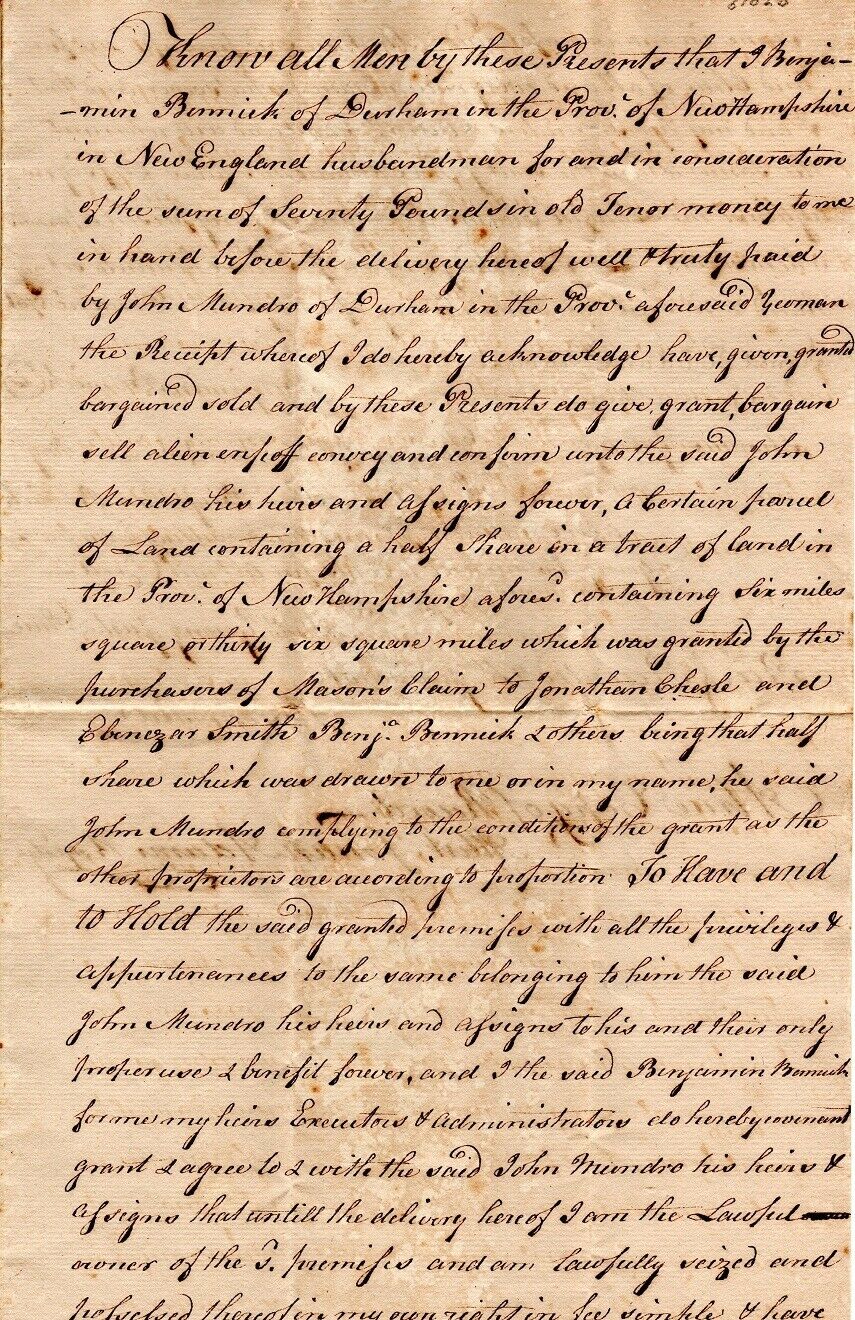 Know all Men by these Presents that I Benja-
-min Bennick of Durham in the Prov.ᵉ of New Hampshire
in New England husbandman for and in consideration
of the sum of Seventy Pounds in old Tenor money to me
in hand before the delivery hereof well & truly paid
by John Mundro of Durham in the Prov.ᵉ aforesaid Yeoman
the Receipt whereof I do hereby acknowledge have, given, granted
bargained sold and by these Presents do give, grant, bargain
sell alien enfeoff convey and confirm unto the said John
Mundro his heirs and assigns forever, a Certain parcel
of Land containing a half Share in a tract of land in
the Prov.ᵉ of New Hampshire afores.ᵈ containing Six miles
square or thirty six square miles which was granted by the
purchasers of Mason's Claim to Jonathan Chesle and
Ebenezar Smith Benj.ᵃ Bennick & others being that half
share which was drawn to me or in my name, he said
John Mundro complying to the conditions of the grant as the
other proprietors are according to proportion To Have and
to Hold the said granted premises with all the privileges &
appurtenances to the same belonging to him the said
John Mundro his heirs and assigns to his and their only
proper use & benefit forever, and I the said Benjamin Bennick
for me my heirs Executors & administrators do hereby covenant
grant & agree to & with the said John Mundro his heirs &
assigns that untill the delivery hereof I am the Lawful
owner of the s.ᵈ premises and am lawfully seized and
possessed thereof in my own right in fee simple & have